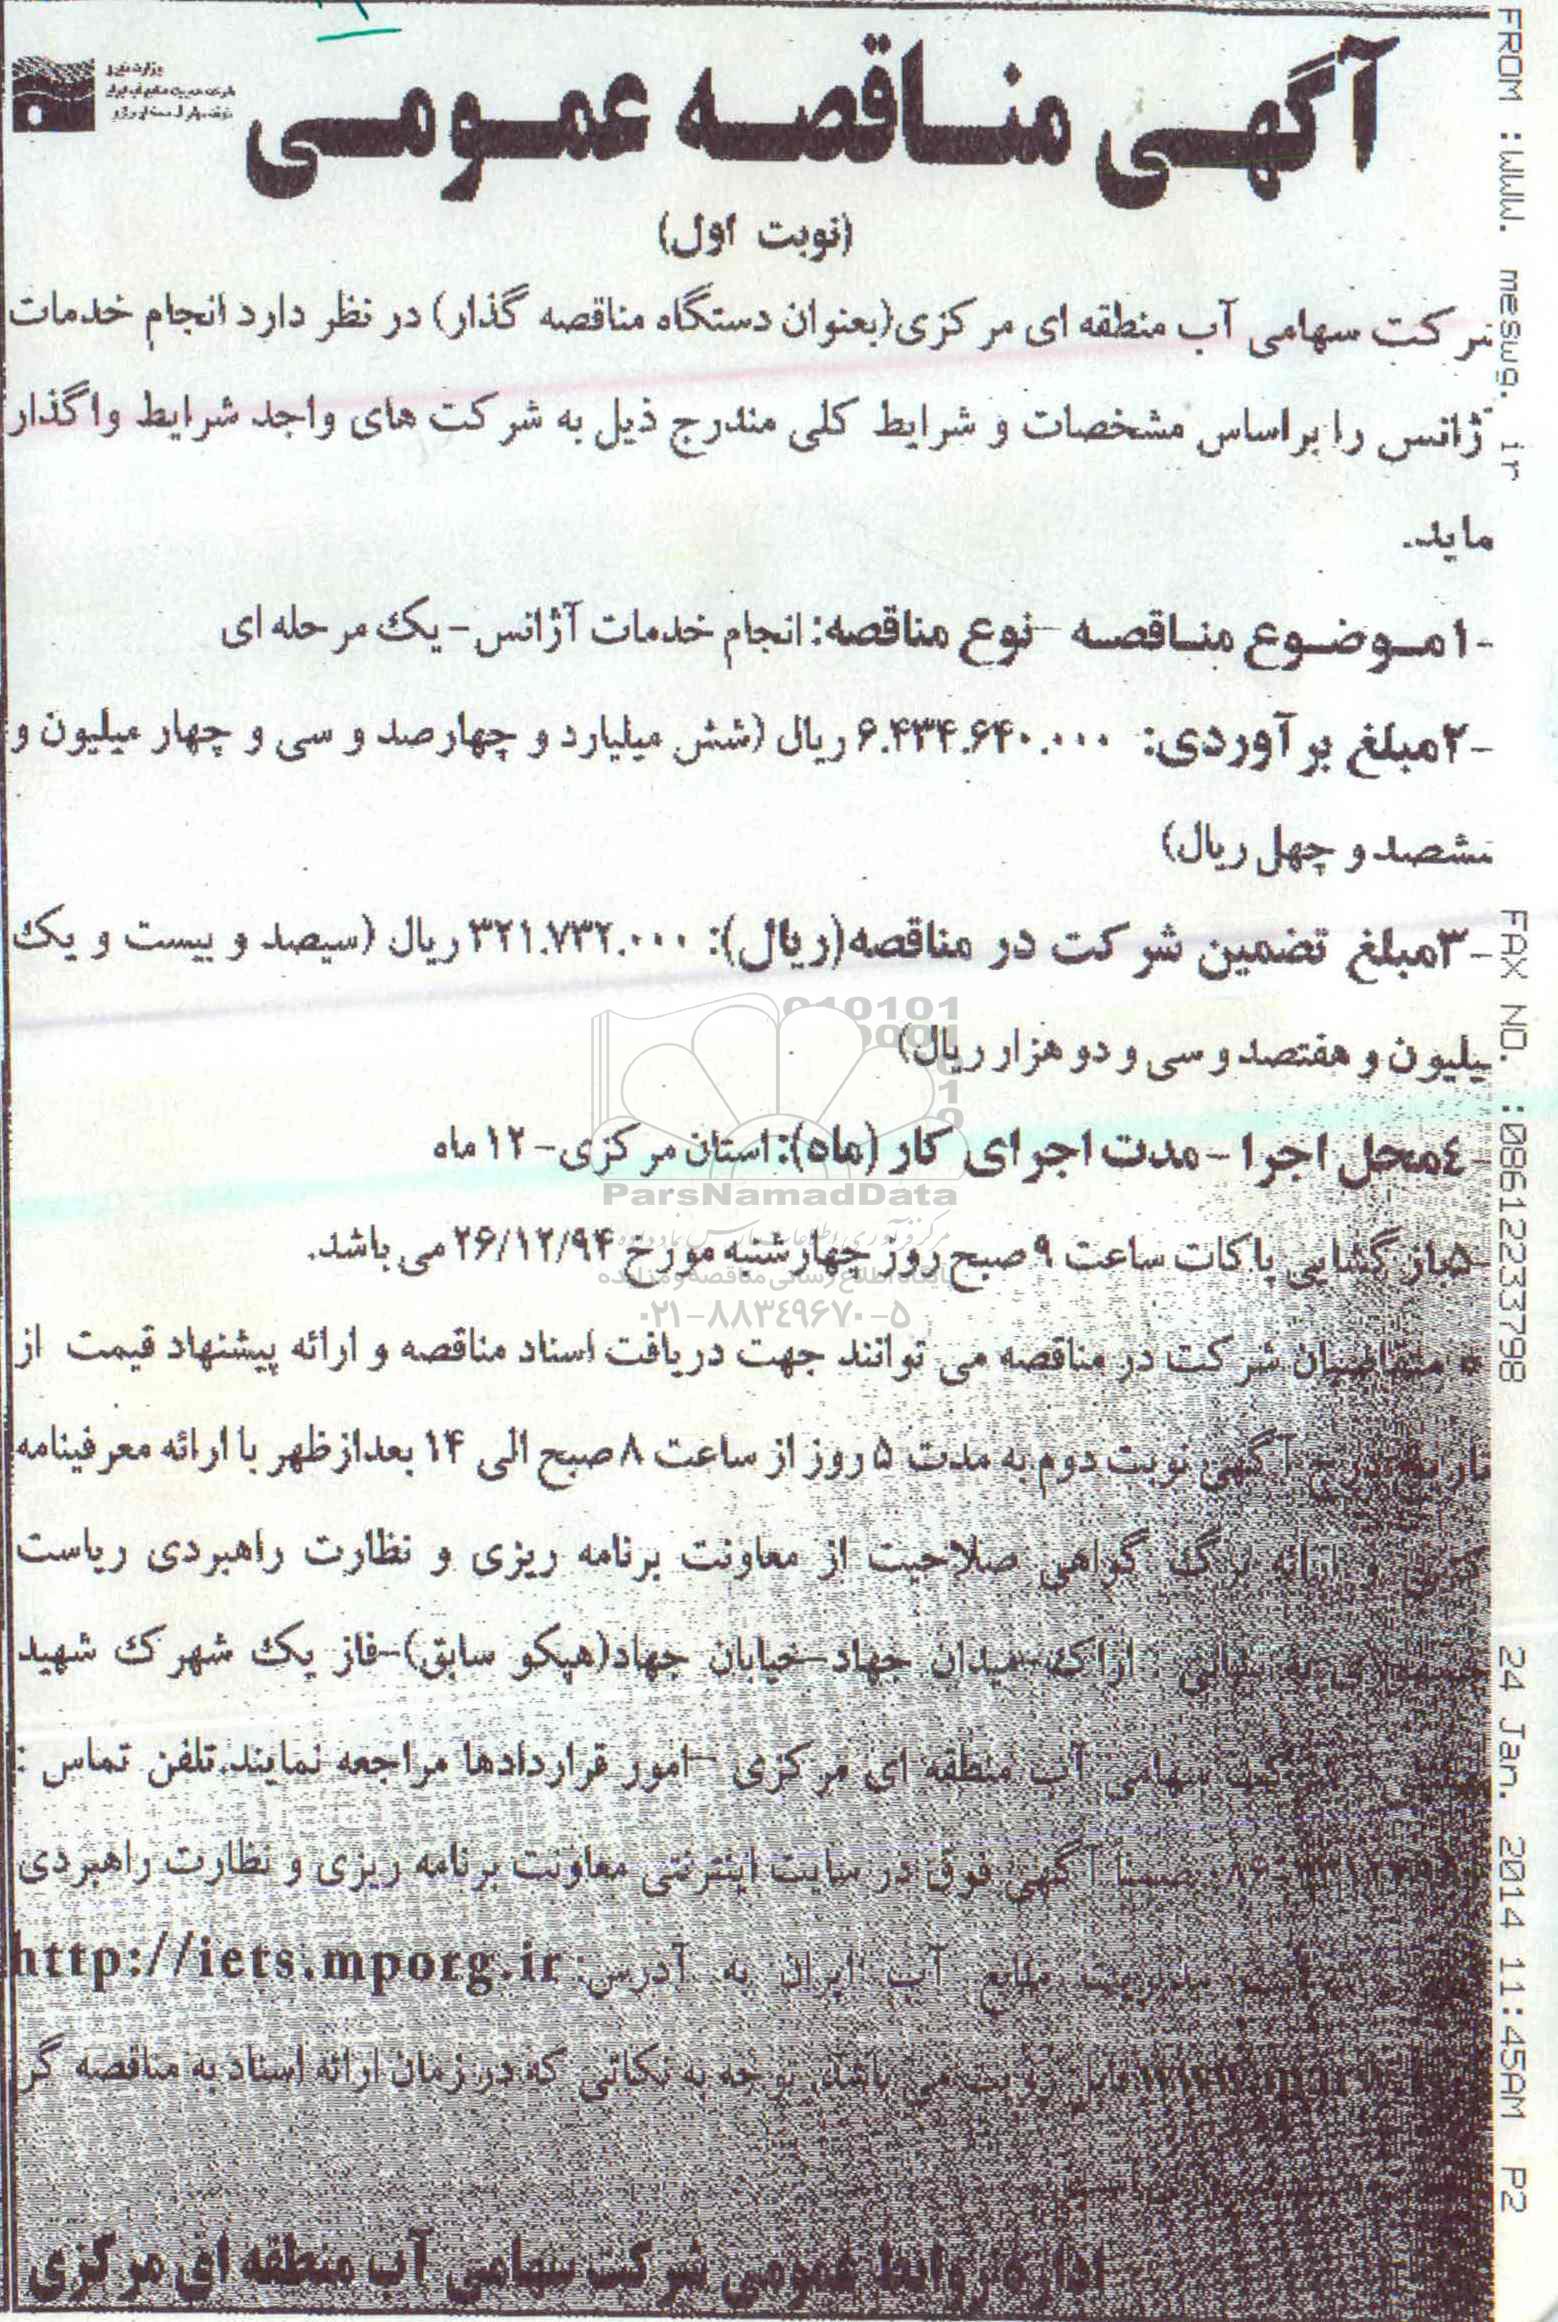 آگهی مناقصه عمومی
وزارت نیرو
شرکت مدیریت منابع آب ایران
(نوبت اول)
شرکت سهامی آب منطقه ای مرکزی(بعنوان دستگاه مناقصه گذار) در نظر دارد انجام خدمات
ژانس را براساس مشخصات و شرایط کلی مندرج ذیل به شرکت های واجد شرایط واگذار
ماید.
-۱موضوع مناقصه -نوع مناقصه: انجام خدمات آژانس-یک مرحله ای
-۲مبلغ برآوردی: ۶.۴۳۴.۶۴۰.۰۰۰ ریال (شش میلیارد و چهارصد و سی و چهار میلیون و
ششصد و چهل ریال)
-۳مبلغ تضمین شرکت در مناقصه(ریال): ۳۲۱.۷۳۲.۰۰۰ ریال (سیصد و بیست و یک
یلیون و هفتصد و سی و دو هزار ریال)
-٤محل اجرا -مدت اجرای کار (ماه): استان مرکزی- ۱۲ ماه
-۵بازگشایی پاکات ساعت ۹ صبح روز چهارشنبه مورخ ۲۶/۱۲/۹۴ می باشد.
* متقاضیان شرکت در مناقصه می توانند جهت دریافت اسناد مناقصه و ارائه پیشنهاد قیمت از
تاریخ درج آگهی نوبت دوم به مدت ۵ روز از ساعت ۸ صبح الی ۱۴ بعدازظهر با ارائه معرفینامه
کتبی و ارائه برگ گواهی صلاحیت از معاونت برنامه ریزی و نظارت راهبردی ریاست
جمهوری به نشانی : اراک-میدان جهاد-خیابان جهاد(هپکو سابق)-فاز یک شهرک شهید
شرکت سهامی آب منطقه ای مرکزی -امور قراردادها مراجعه نمایند.تلفن تماس :
ضمنا آگهی فوق در سایت اینترنتی معاونت برنامه ریزی و نظارت راهبردی
مدیریت منابع آب ایران به آدرس: http://iets.mporg.ir
قابل رویت می باشد. توجه به نکاتی که در زمان ارائه اسناد به مناقصه گر
اداره روابط عمومی شرکت سهامی آب منطقه ای مرکزی
ParsNamadData
مرکز فرآوری اطلاعات پارس نماد داده ها
پایگاه اطلاع رسانی مناقصه و مزایده
۰۲۱-۸۸۳٤۹۶۷۰-۵
FROM :www. meswg. ir FAX NO. :08612233798 24 Jan. 2014 11:45AM P2